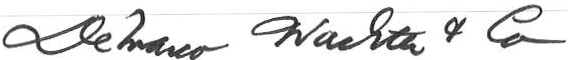 DeMarco Wachter & Co